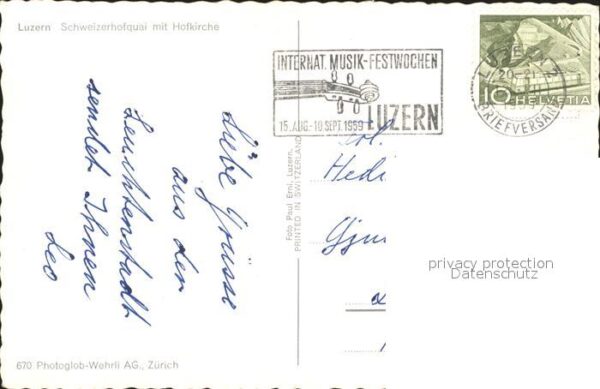 Luzern Schweizerhofquai mit Hofkirche
INTERNAT. MUSIK-FESTWOCHEN
15. AUG.-10. SEPT. 1959 LUZERN
LUZERN 2
20-21
BRIEFVERSAND
10 HELVETIA
Liebe Grüsse
aus der
Leuchtenstadt
sendet Ihnen
Leo
Foto Paul Erni, Luzern.
PRINTED IN SWITZERLAND
Hedi
privacy protection
Datenschutz
670 Photoglob-Wehrli AG., Zürich